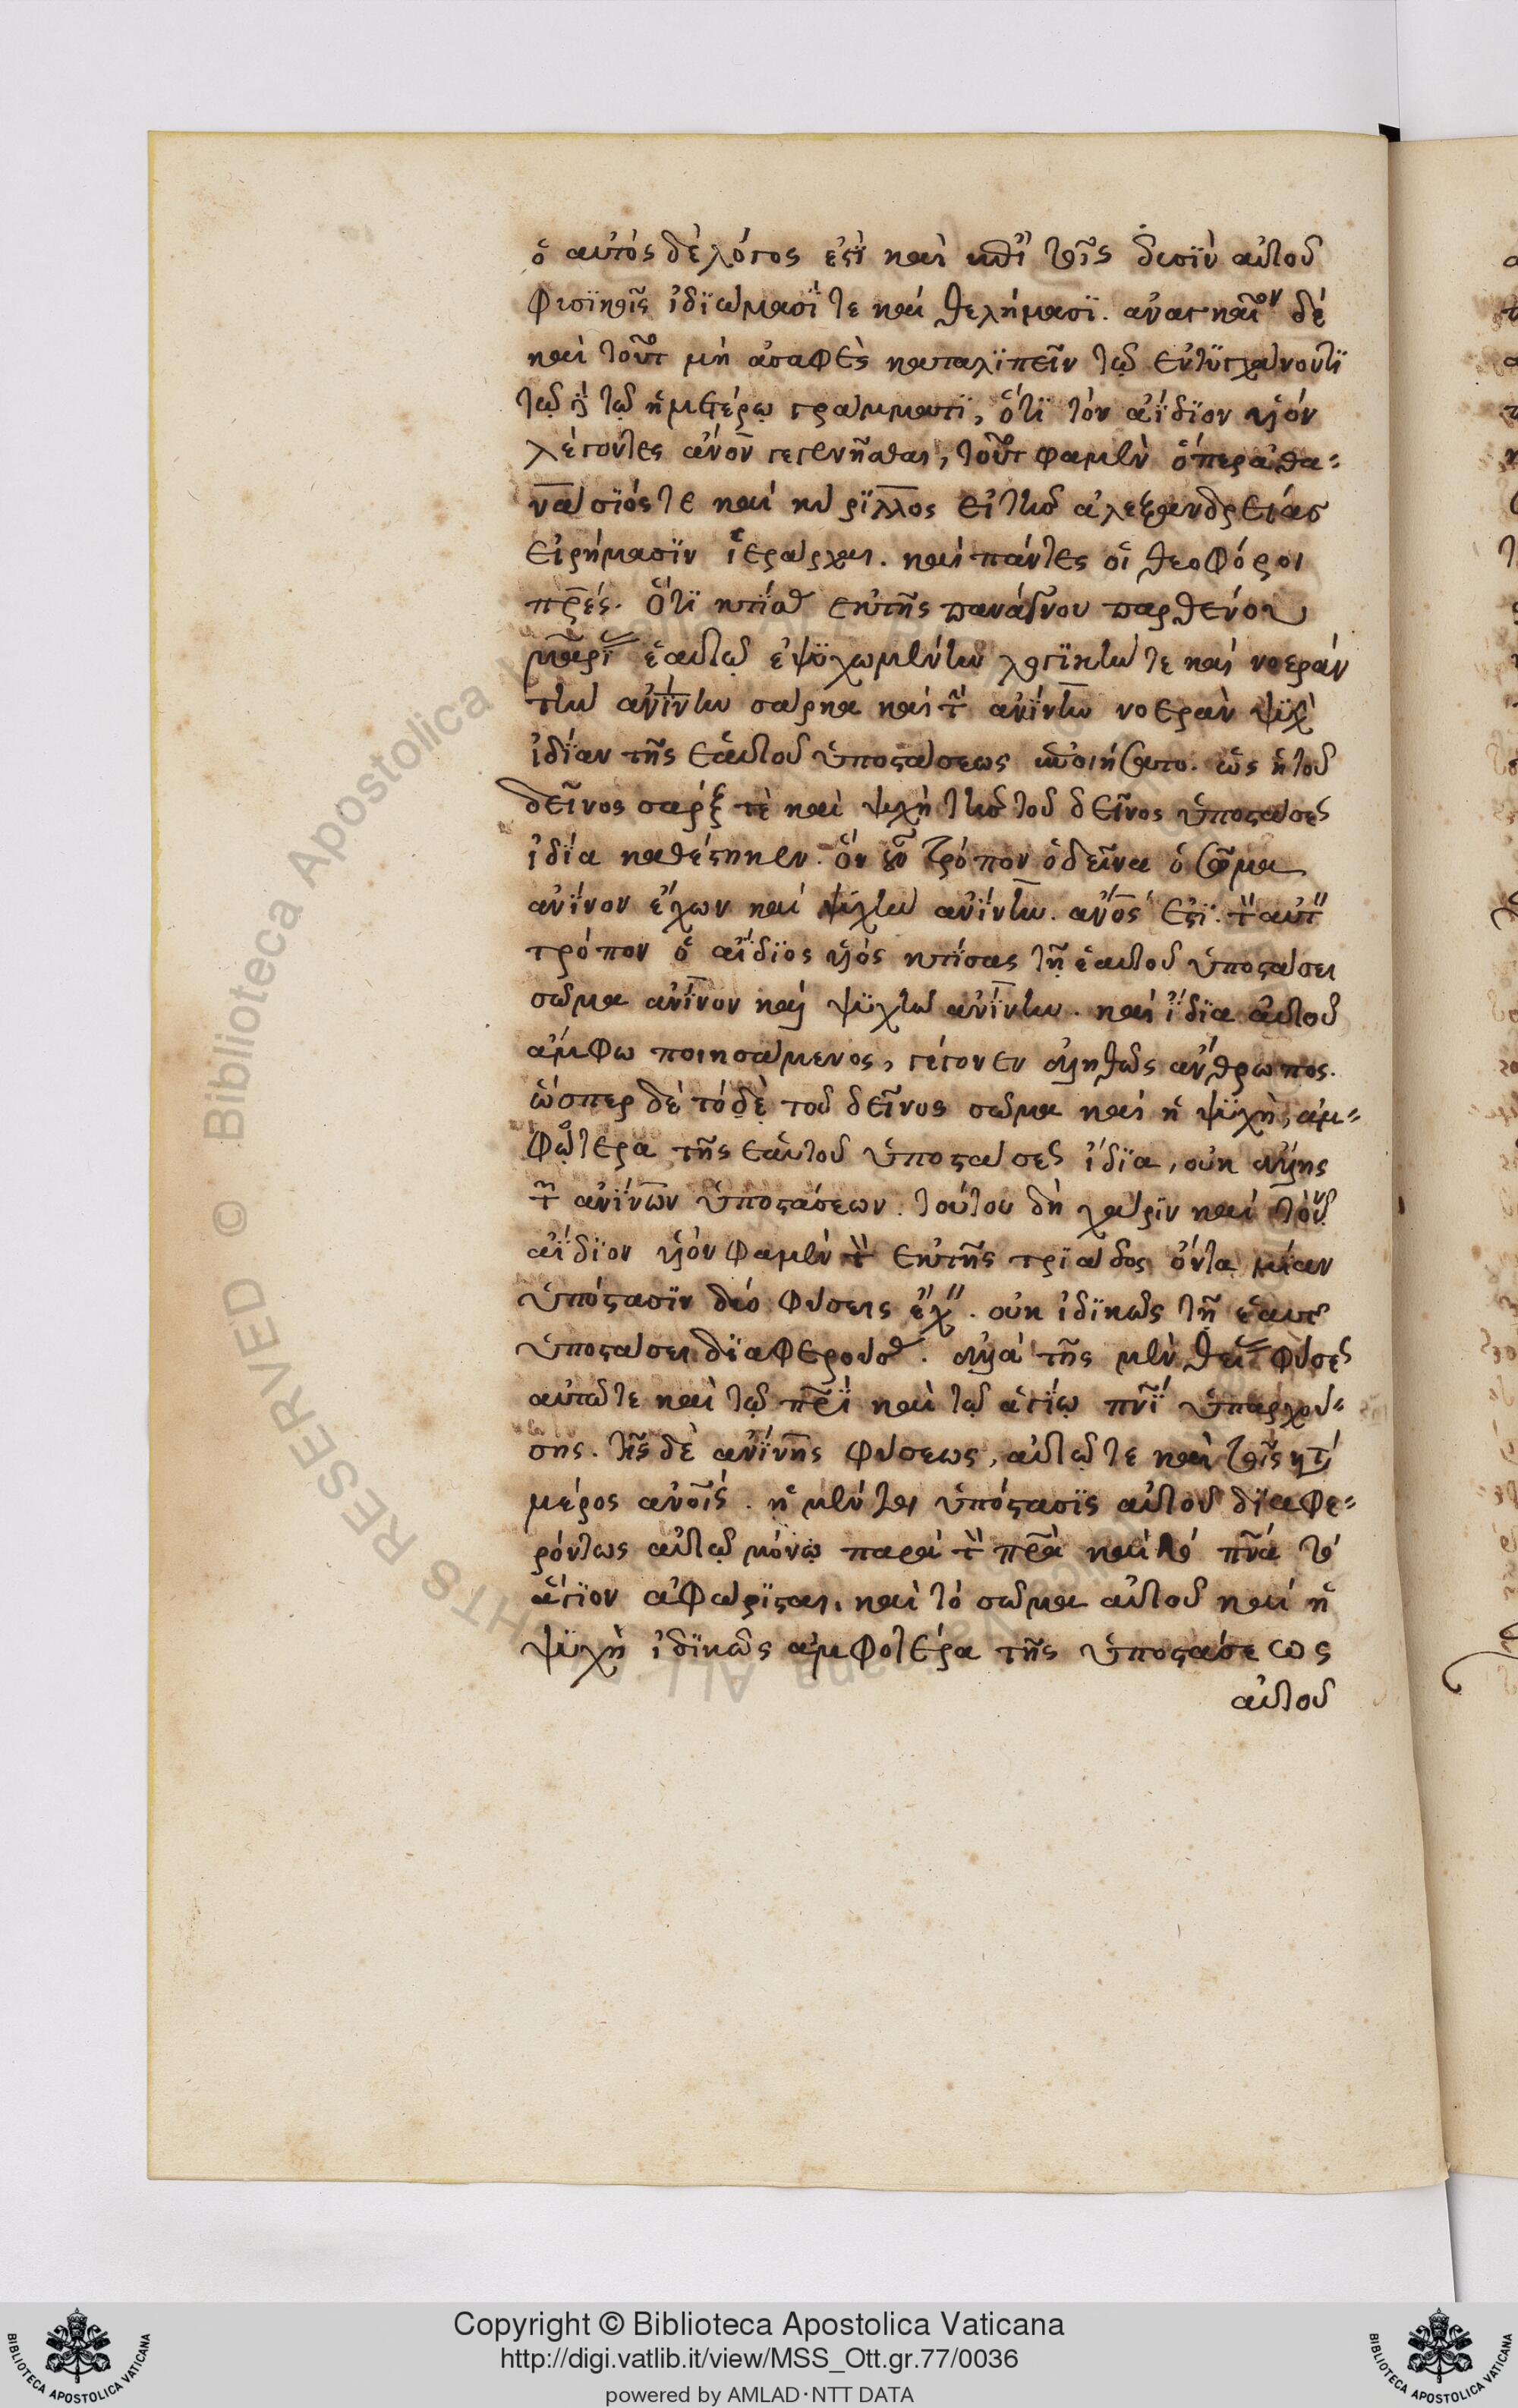 ὁ αὐτὸς δὲ λόγος ἐστὶ καὶ ἐπὶ ταῖς δυσὶν αὐτοῦ
φυσικαῖς ἰδιώμασί τε καὶ θελήμασι. ἀναγκαῖον δὲ
καὶ τοῦτο μὴ ἀσαφὲς καταλιπεῖν τῷ ἐντυγχάνοντι
τῷ τῷ ἡμετέρῳ γράμματι, ὅτι τὸν ἀΐδιον υἱόν
λέγοντες ἄνον γεγενῆσθαι, τοῦτο φαμὲν ὅπερ ἀθα-
νάσιός τε καὶ κύριλλος οἱ τῆς ἀλεξανδρείας
εἰρήκασιν ἱεράρχαι. καὶ πάντες οἱ θεοφόροι
πρες. ὅτι κτίσας ἐν τῆς παναγνου παρθένου
μήτρα ἑαυτῷ ἐψυχωμένην λογικήν τε καὶ νοεράν
τὴν ἀνίνην σάρκα καὶ τὴν ἀνίνην νοερὰν ψυχὴν
ἰδίαν τῆς ἑαυτοῦ ὑποστάσεως ἐποιήσατο. ὡς ἡ τοῦ
δεῖνος σάρξ τε καὶ ψυχὴ τῆς τοῦ δεῖνος ὑποστάσεως
ἰδία καθέστηκεν. ὃν οὖν τρόπον ὁ δεῖνα ὁ σῶμα
ἀνινον ἔχων καὶ ψυχὴν ἀνίνην. ἄνος ἐστί. τὸν αὐτὸν
τρόπον ὁ ἀΐδιος υἱός κτίσας τῇ ἑαυτοῦ ὑποστάσει
σῶμα ἀνινον καὶ ψυχὴν ἀνίνην. καὶ ἴδια αὐτοῦ
ἄμφω ποιησάμενος, γέγονεν ἀληθῶς ἄνθρωπος.
ὥσπερ δὲ τόδε τοῦ δεῖνος σῶμα καὶ ἡ ψυχὴ, ἀμ-
φότερα τῆς ἑαυτοῦ ὑποστάσεως ἴδια, οὐκ ἄλλης
τῶν ἀνίνων ὑποστάσεων. τούτου δὴ χάριν καὶ τὸν
ἀΐδιον υἱόν φαμὲν τὸν ἐκ τῆς τριάδος ὄντα μίαν
ὑπόστασιν δύο φύσεις ἔχειν. οὐκ ἰδικῶς τῇ ἑαυτοῦ
ὑποστάσει διαφερούσας. ἀλλὰ τῆς μὲν θείας φύσεως
αὐτῷ τε καὶ τῷ πρὶ καὶ τῷ ἁγίῳ πνι ὑπαρχού-
σης. τῆς δὲ ἀνίνης φύσεως, αὐτῷ τε καὶ τοῖς κατὰ
μέρος ἀνοις. ἡ μέντοι ὑπόστασις αὐτοῦ διαφε-
ρόντως αὐτῷ μόνῳ παρὰ τὸν πρα καὶ τὸ πνα τὸ
ἅγιον ἀφώρισται, καὶ τὸ σῶμα αὐτοῦ καὶ ἡ
ψυχὴ ἰδικῶς ἀμφότερα τῆς ὑποστάσεως
αὐτοῦ
Copyright © Biblioteca Apostolica Vaticana
http://digi.vatlib.it/view/MSS_Ott.gr.77/0036
powered by AMLAD·NTT DATA